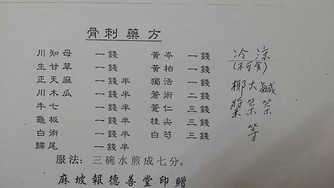 骨刺藥方
川知母 一錢 黃岑 一錢
生甘草 一錢 黃柏 一錢
正天麻 一錢半 獨活 一錢
川木瓜 一錢半 蒼術 二錢
牛七 一錢半 薏仁 三錢
龜板 一錢半 桂尖 三錢
白術 一錢半 白芍 三錢
歸尾 一錢半
服法：三碗水煎成七分。
麻坡報德善堂印贈
冷涼
椰大鹹
等